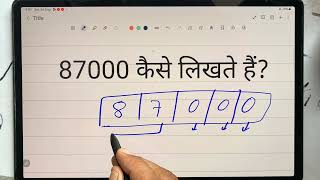 Title
87000 कैसे लिखते हैं?
8 7 0 0 0